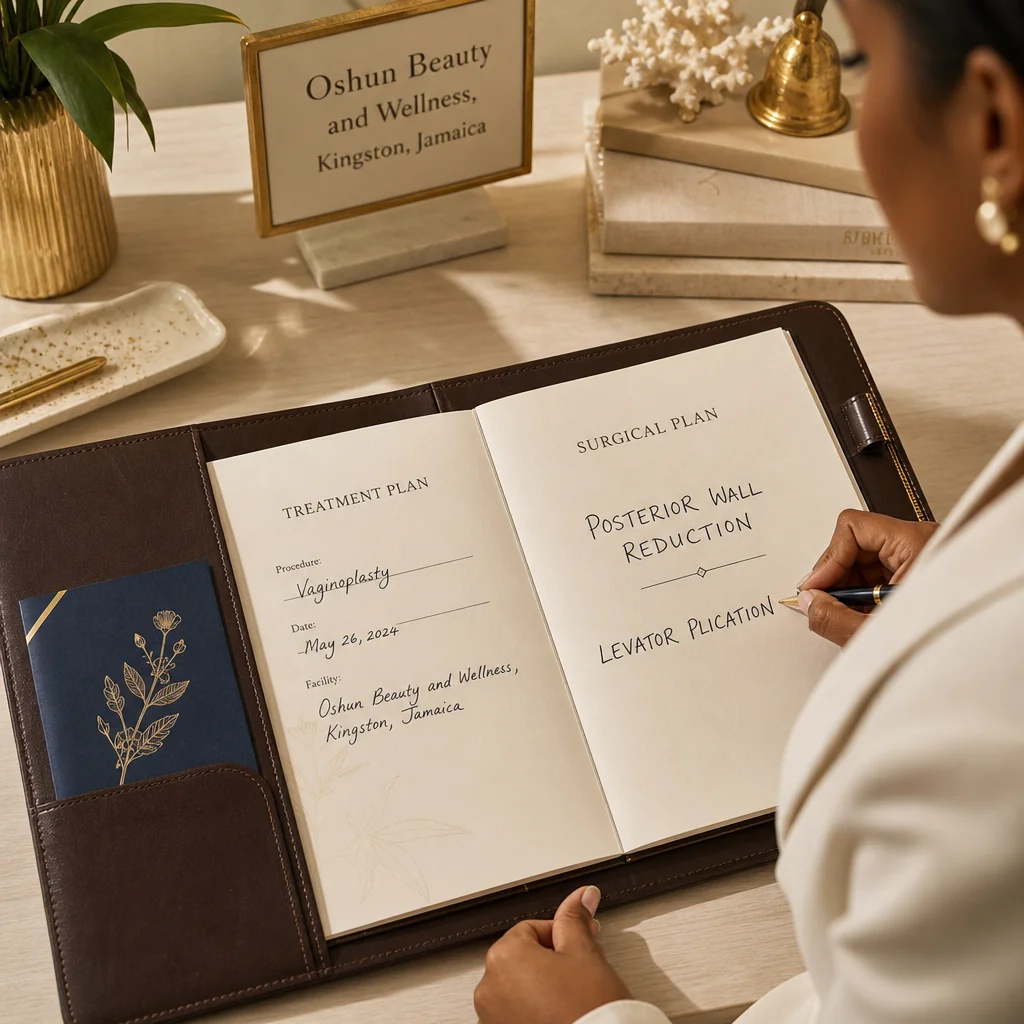 Oshun Beauty
and Wellness,
Kingston, Jamaica
TREATMENT PLAN
Procedure:
Vaginoplasty
Date:
May 26, 2024
Facility:
Oshun Beauty and Wellness,
Kingston, Jamaica
SURGICAL PLAN
POSTERIOR WALL
REDUCTION
LEVATOR PLICATION